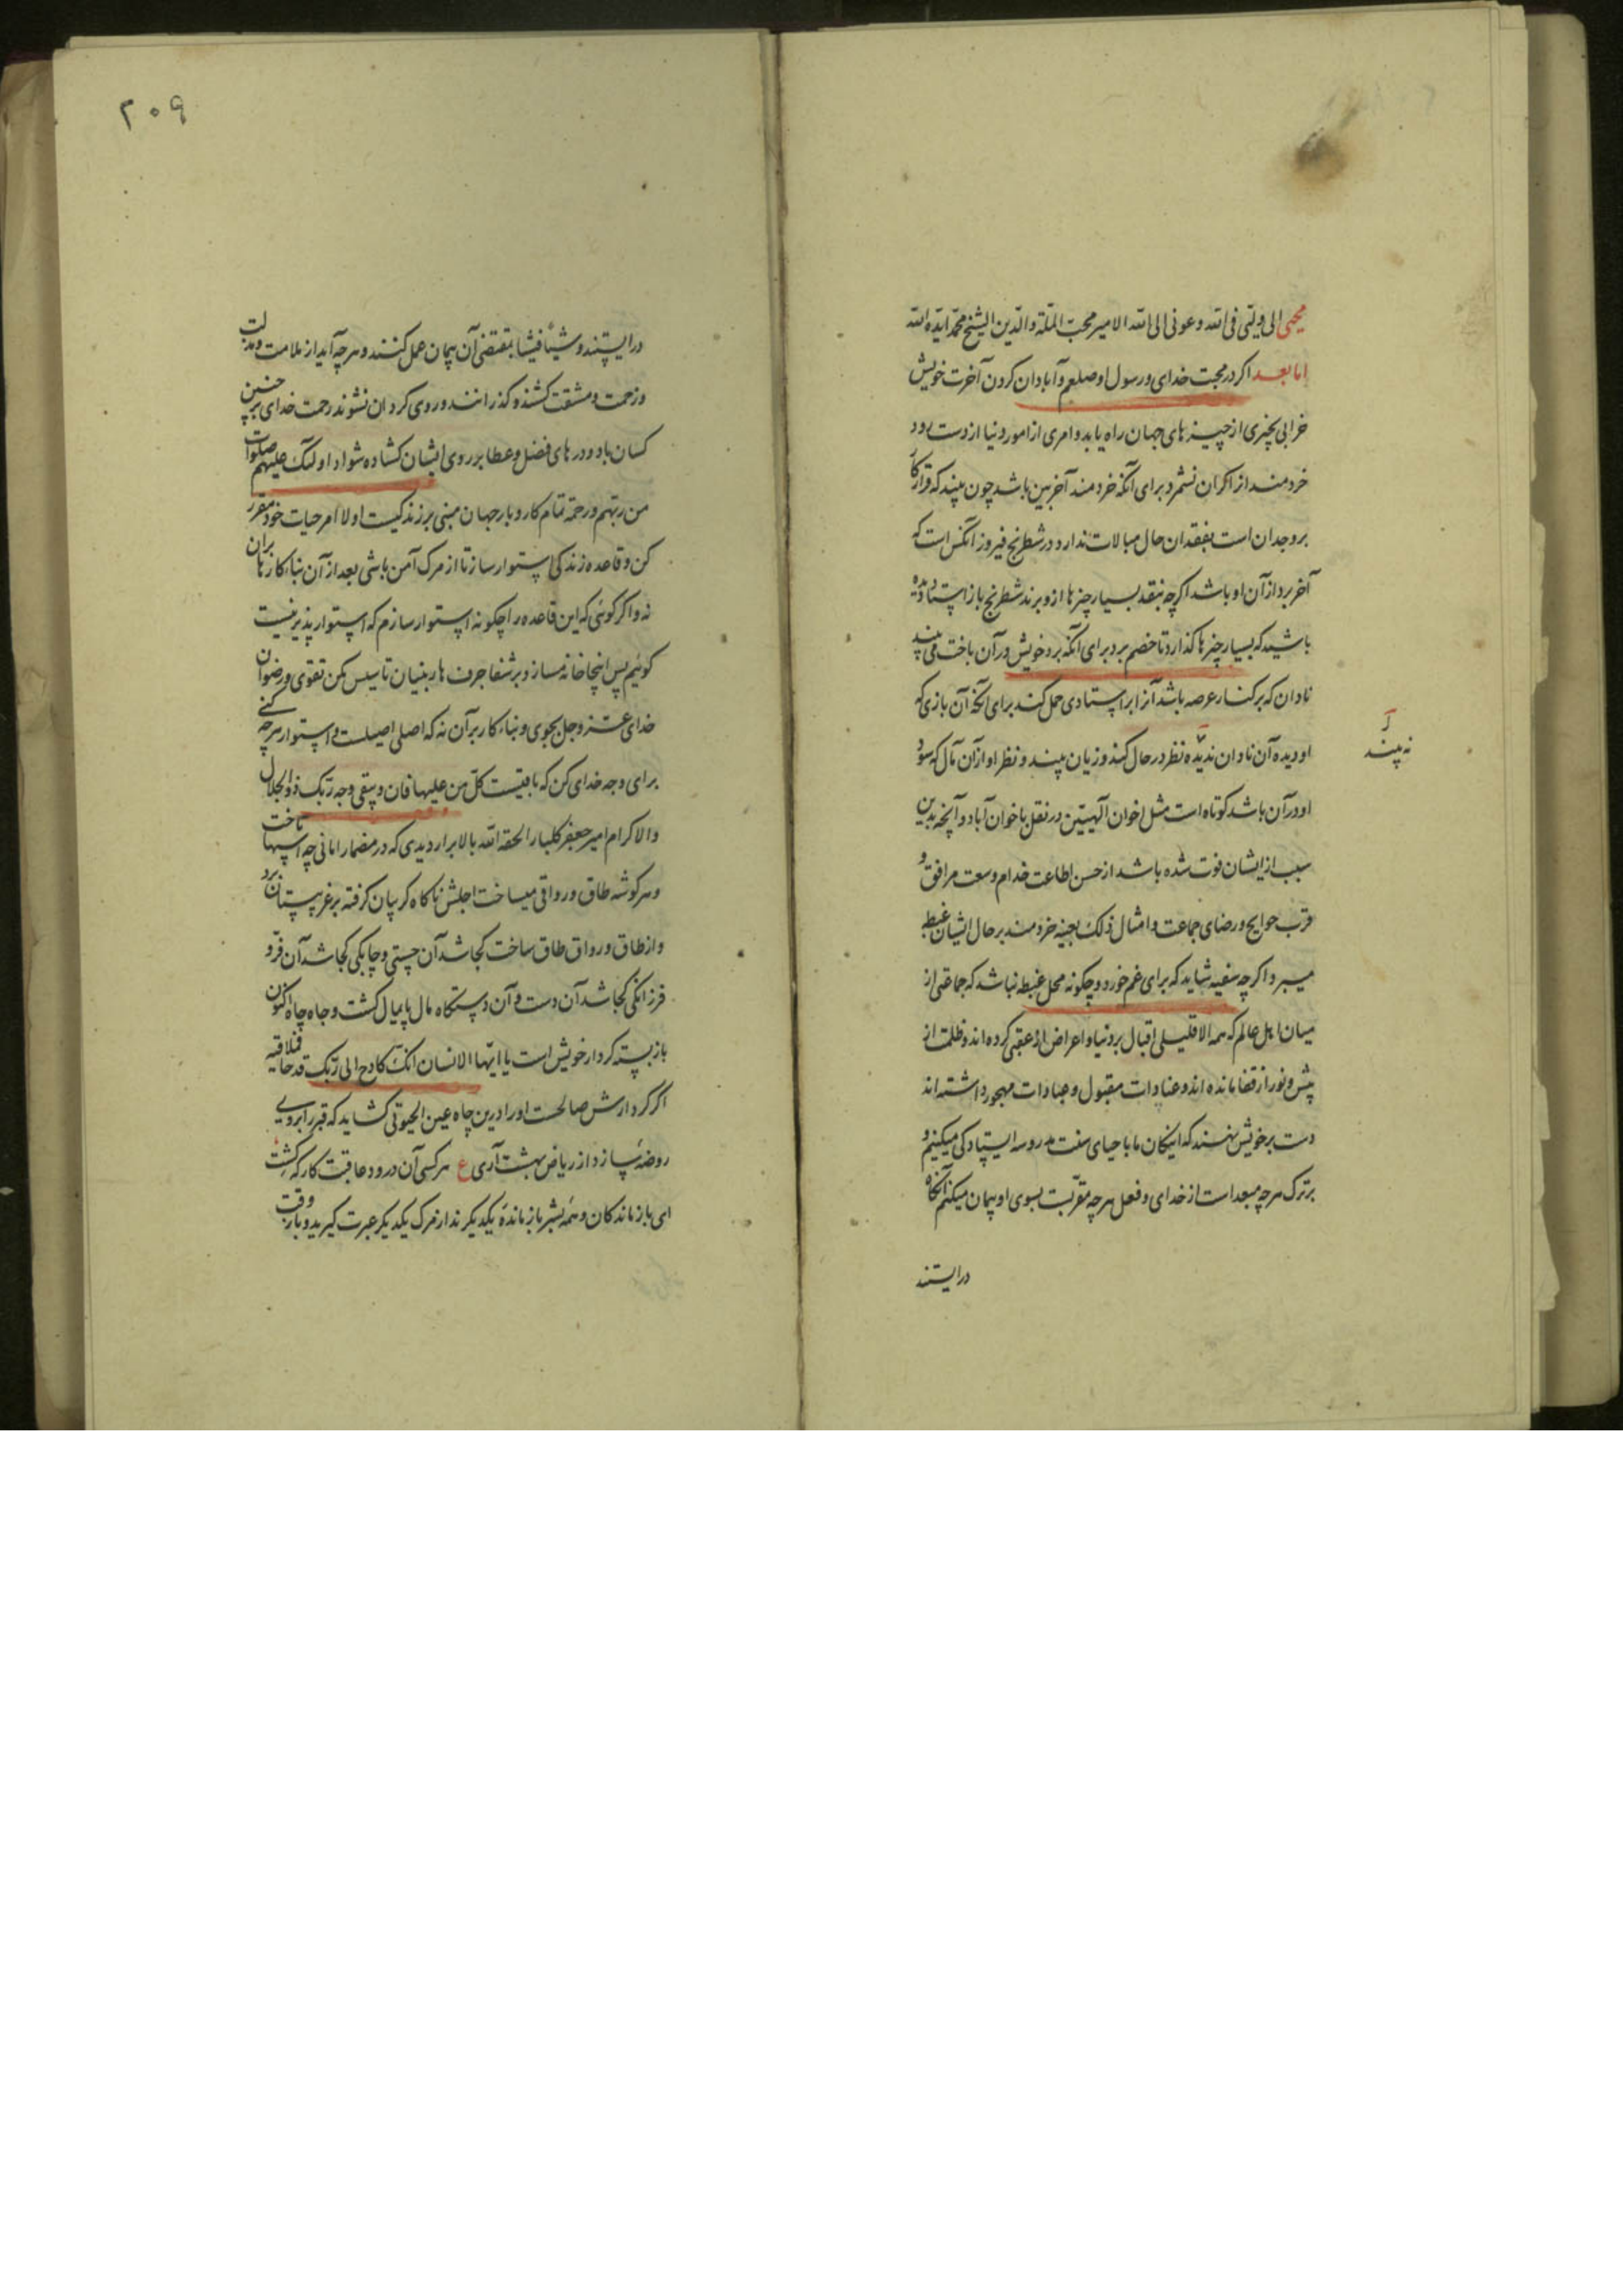 محیی الی ولیّی فی الله وعونی الی الله الامیر محب الملة والدین الشیخ محمد ایّده الله
اما بعد اکر در محبت خدای و رسول او صلعم و آبادان کردن آخرت خویش
خرابی بچیزی از چیزهای جهان راه یابد و امری از امور دنیا از دست رود
خردمند از آن کران نشمرد برای آنکه خردمند آخربین باشد چون بیند که قرار کار
بر وجدان است بفقدان حال مبالات ندارد در شطرنج فیروز آنکس است که
آخر برد از آن او باشد اکرچه بنقد بسیار چیزها ازو برند شطرنج باز استاد دیده
باشید که بسیار چیزها کذارد تا خصم برد برای آنکه برد خویش در آن باخت می بیند
نادان که بر کنار عرصه باشد آنرا بر استادی حمل کند برای آنکه آن بازی که
او دیده آن نادان ندیده نظر در حال کند و زیان بیند و نظر او از آن مآل که سود
نه بیند
او در آن باشد کوتاه است مثل اخوان آلهیین در نقل باخوان آباد و آنچه بدین
سبب از ایشان فوت شده باشد از حسن اطاعت خدام و سعت مرافق و
قرب حوایج و رضای جماعت و امثال ذلک بعینه خردمند بر حال ایشان غبطه
میبرد اکرچه سفیه شاید که برای غم خورد و چکونه محل غبطه نباشد که جماعتی از
میان اهل عالم که همه الا قلیلی اقبال بر دنیا و اعراض از عقبی کرده اند و ظلمت از
پیش و نور از قفا مانده اند و عنادات مقبول و عبادات مهجور داشته اند
دست بر خویش نهند که اینکان ما باحیای سنت مدروسه ایستادکی میکنیم و
بر ترک هرچه مبعد است از خدای و فعل هرچه مقربت بسوی او پیمان میکنیم آنکاه
در ایستند
۲۰۹
در ایستند و شیئا فشیئا بمقتضی آن پیمان عمل کنند و هرچه آید از ملامت و مذلت
و زحمت و مشقت کشند و کذرانند و روی کردان نشوند رحمت خدای بر چنین
کسان باد و درهای فضل و عطا بر روی ایشان کشاده شواد اولئک علیهم صلوات
من ربهم و رحمة تمام کار و بار جهان مبنی بر زندکیست اولا امر حیات خود مقرر
کن و قاعده زندکی استوار ساز تا از مرک آمن باشی بعد از آن بناء کارها بران
نه و اکر کوئی که این قاعده را چکونه استوار سازم که استوار پذیر نیست
کوئیم پس اینجا خانه مساز و بر شفا جرف هار بنیان تاسیس مکن تقوی و رضوان
خدای عز وجل بجوی و بناء کار بر آن نه که اصلی اصیلست و استوار هرچه کنی
برای وجه خدای کن که باقیست کلّ من علیها فان و یبقی وجه ربّک ذو الجلال
والاکرام امیر جعفر کلبار الحقه الله بالابرار دیدی که در مضمار امانی چه اسپها تاخت
و هر کوشه طاق و رواقی میساخت اجلش ناکاه کریبان کرفته بر غریبستان برد
و از طاق و رواق طاق ساخت کجا شد آن چستی و چابکی کجا شد آن فر و
فرزانکی کجا شد آن دست و آن دستکاه مال پایمال کشت و جاه چاه اکنون
باز بسته کردار خویش است یا ایّها الانسان انّک کادح الی ربّک کدحا فملاقیه
اکر کردارش صالحست او را درین چاه عین الحیوتی کشاید که قبر را بر وی
روضه سازد از ریاض بهشت آری ع هر کسی آن درود عاقبت کار که کشت
ای بازماندکان و همه بشر بازمانده یکدیکرند از مرک یکدیکر عبرت کیرید و بار وقت